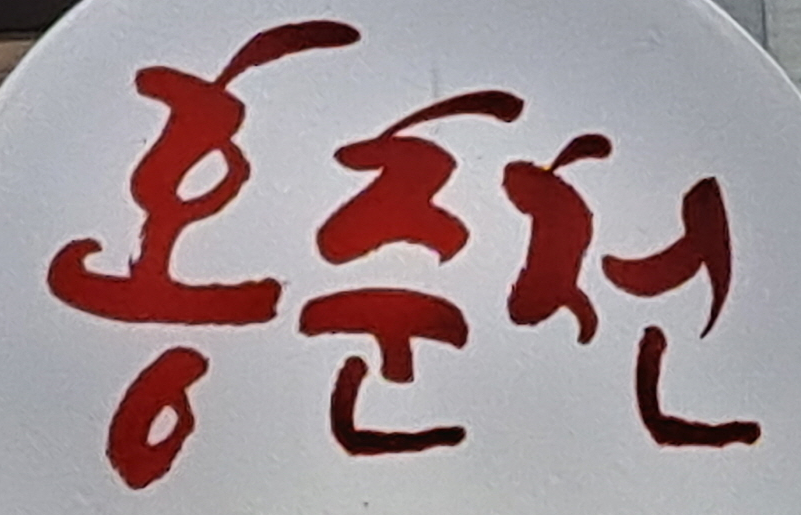 홍춘천